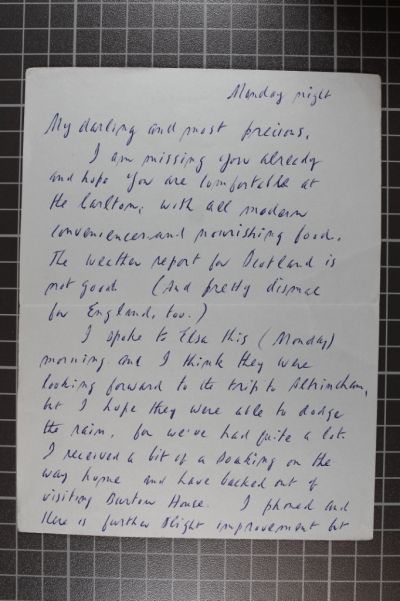 Monday night
My darling and most precious,
I am missing you already
and hope you are comfortable at
the Carlton, with all modern
conveniences and nourishing food.
The weather report for Scotland is
not good (And pretty dismal
for England, too.)
I spoke to Elsa this (Monday)
morning and I think they were
looking forward to the trip to Altrincham,
but I hope they were able to dodge
the rain, for we've had quite a lot.
I received a bit of a soaking on the
way home and have backed out of
visiting Burton House. I phoned and
there is further slight improvement but